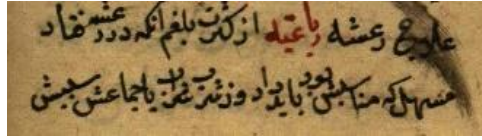 علاج رعشه رباعیه از کثرت بلغم آنکه در رعشه فتاد
مسهل که مناسبش بود باید داد وز شرب شراب یا جماعش سببش